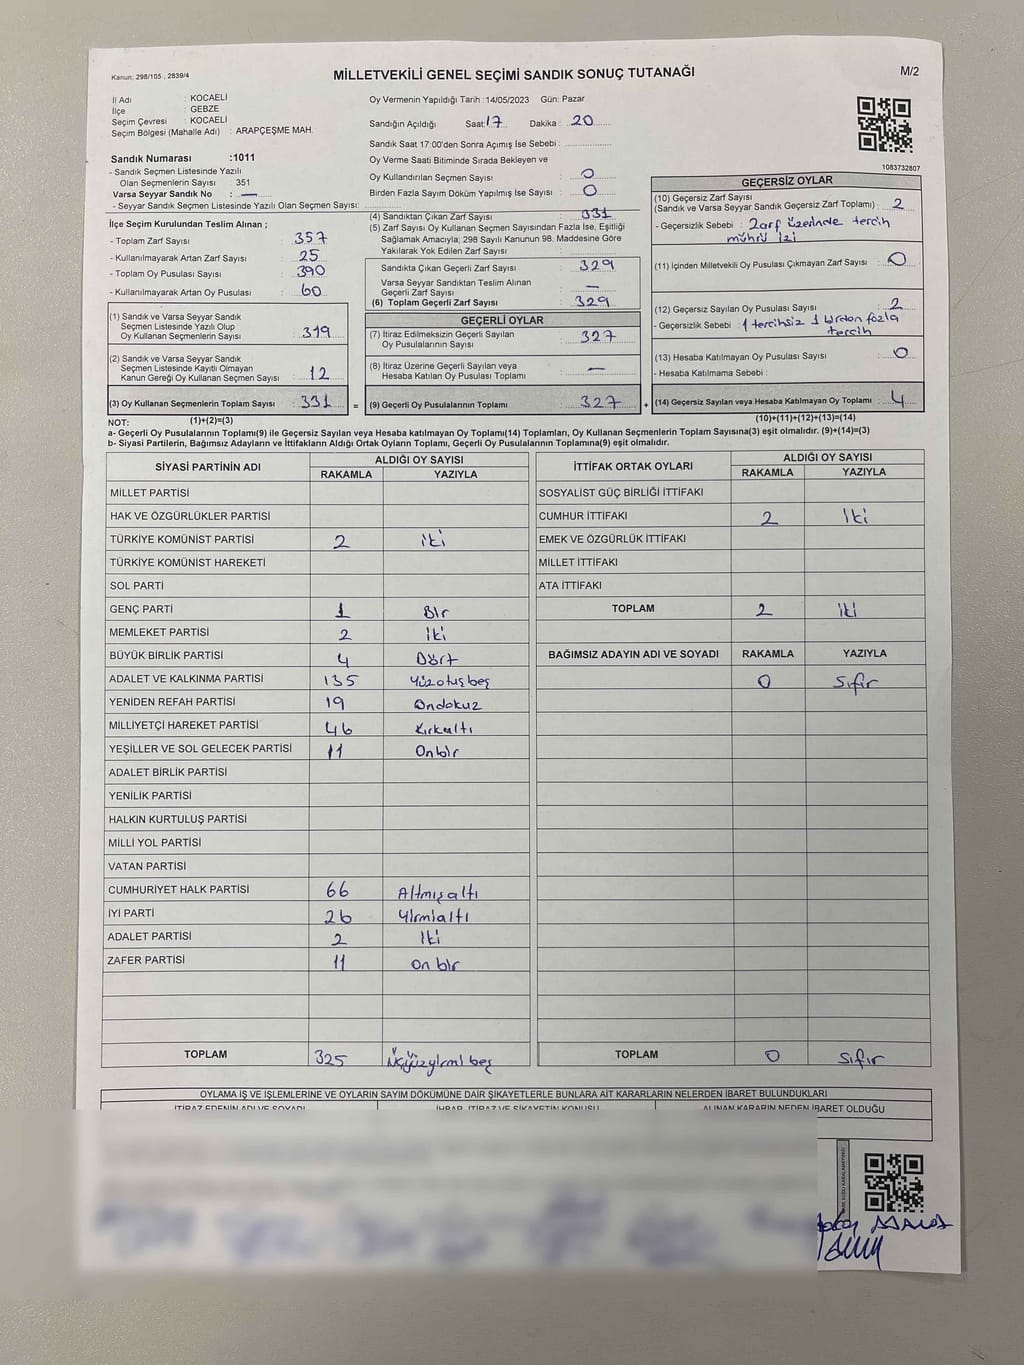 Kanun: 298/105 , 2839/4
MİLLETVEKİLİ GENEL SEÇİMİ SANDIK SONUÇ TUTANAĞI
M/2
İl Adı : KOCAELİ
İlçe : GEBZE
Seçim Çevresi : KOCAELİ
Seçim Bölgesi (Mahalle Adı) : ARAPÇEŞME MAH.
Sandık Numarası :1011
- Sandık Seçmen Listesinde Yazılı
Olan Seçmenlerin Sayısı 351
Varsa Seyyar Sandık No : —
- Seyyar Sandık Seçmen Listesinde Yazılı Olan Seçmen Sayısı:
Oy Vermenin Yapıldığı Tarih :14/05/2023 Gün: Pazar
Sandığın Açıldığı Saat:17 Dakika : 20
Sandık Saat 17:00'den Sonra Açımış İse Sebebi :
Oy Verme Saati Bitiminde Sırada Bekleyen ve
Oy Kullandırılan Seçmen Sayısı : 0
Birden Fazla Sayım Döküm Yapılmış İse Sayısı : 0
1083732807
İlçe Seçim Kurulundan Teslim Alınan ;
- Toplam Zarf Sayısı : 357
- Kullanılmayarak Artan Zarf Sayısı : 25
- Toplam Oy Pusulası Sayısı : 390
- Kullanılmayarak Artan Oy Pusulası : 60
(1) Sandık ve Varsa Seyyar Sandık
Seçmen Listesinde Yazılı Olup
Oy Kullanan Seçmenlerin Sayısı : 319
(2) Sandık ve Varsa Seyyar Sandık
Seçmen Listesinde Kayıtlı Olmayan
Kanun Gereği Oy Kullanan Seçmen Sayısı : 12
(3) Oy Kullanan Seçmenlerin Toplam Sayısı : 331
(4) Sandıktan Çıkan Zarf Sayısı : 331
(5) Zarf Sayısı Oy Kullanan Seçmen Sayısından Fazla İse, Eşitliği
Sağlamak Amacıyla; 298 Sayılı Kanunun 98. Maddesine Göre
Yakılarak Yok Edilen Zarf Sayısı :
Sandıkta Çıkan Geçerli Zarf Sayısı : 329
Varsa Seyyar Sandıktan Teslim Alınan
Geçerli Zarf Sayısı : —
(6) Toplam Geçerli Zarf Sayısı : 329
GEÇERLİ OYLAR
(7) İtiraz Edilmeksizin Geçerli Sayılan
Oy Pusulalarının Sayısı : 327
(8) İtiraz Üzerine Geçerli Sayılan veya
Hesaba Katılan Oy Pusulası Toplamı : —
= (9) Geçerli Oy Pusulalarının Toplamı : 327 +
GEÇERSİZ OYLAR
(10) Geçersiz Zarf Sayısı
(Sandık ve Varsa Seyyar Sandık Geçersiz Zarf Toplamı) : 2
- Geçersizlik Sebebi : Zarf üzerinde tercih
mührü izi
(11) İçinden Milletvekili Oy Pusulası Çıkmayan Zarf Sayısı : 0
(12) Geçersiz Sayılan Oy Pusulası Sayısı : 2
- Geçersizlik Sebebi : 1 tercihsiz 1 birden fazla
tercih
(13) Hesaba Katılmayan Oy Pusulası Sayısı : 0
- Hesaba Katılmama Sebebi :
(14) Geçersiz Sayılan veya Hesaba Katılmayan Oy Toplamı : 4
NOT: (1)+(2)=(3)
(10)+(11)+(12)+(13)=(14)
a- Geçerli Oy Pusulalarının Toplamı(9) ile Geçersiz Sayılan veya Hesaba Katılmayan Oy Toplamı(14) Toplamları, Oy Kullanan Seçmenlerin Toplam Sayısına(3) eşit olmalıdır. (9)+(14)=(3)
b- Siyasi Partilerin, Bağımsız Adayların ve İttifakların Aldığı Ortak Oyların Toplamı, Geçerli Oy Pusulalarının Toplamına(9) eşit olmalıdır.
SİYASİ PARTİNİN ADI ALDIĞI OY SAYISI
RAKAMLA YAZIYLA
MİLLET PARTİSİ
HAK VE ÖZGÜRLÜKLER PARTİSİ
TÜRKİYE KOMÜNİST PARTİSİ 2 iki
TÜRKİYE KOMÜNİST HAREKETİ
SOL PARTİ
GENÇ PARTİ 1 Bir
MEMLEKET PARTİSİ 2 iki
BÜYÜK BİRLİK PARTİSİ 4 Dört
ADALET VE KALKINMA PARTİSİ 135 Yüzotuzbeş
YENİDEN REFAH PARTİSİ 19 Ondokuz
MİLLİYETÇİ HAREKET PARTİSİ 46 Kırkaltı
YEŞİLLER VE SOL GELECEK PARTİSİ 11 Onbir
ADALET BİRLİK PARTİSİ
YENİLİK PARTİSİ
HALKIN KURTULUŞ PARTİSİ
MİLLİ YOL PARTİSİ
VATAN PARTİSİ
CUMHURİYET HALK PARTİSİ 66 Altmışaltı
İYİ PARTİ 26 Yirmialtı
ADALET PARTİSİ 2 İki
ZAFER PARTİSİ 11 on bir
TOPLAM 325 Üçyüzyirmi beş
İTTİFAK ORTAK OYLARI ALDIĞI OY SAYISI
RAKAMLA YAZIYLA
SOSYALİST GÜÇ BİRLİĞİ İTTİFAKI
CUMHUR İTTİFAKI 2 İki
EMEK VE ÖZGÜRLÜK İTTİFAKI
MİLLET İTTİFAKI
ATA İTTİFAKI
TOPLAM 2 iki
BAĞIMSIZ ADAYIN ADI VE SOYADI RAKAMLA YAZIYLA
0 Sıfır
TOPLAM 0 Sıfır
OYLAMA İŞ VE İŞLEMLERİNE VE OYLARIN SAYIM DÖKÜMÜNE DAİR ŞİKAYETLERLE BUNLARA AİT KARARLARIN NELERDEN İBARET BULUNDUKLARI
İTİRAZ EDENİN ADI VE SOYADI İHBAR, İTİRAZ VE ŞİKAYETİN KONUSU ALINAN KARARIN NEDEN İBARET OLDUĞU